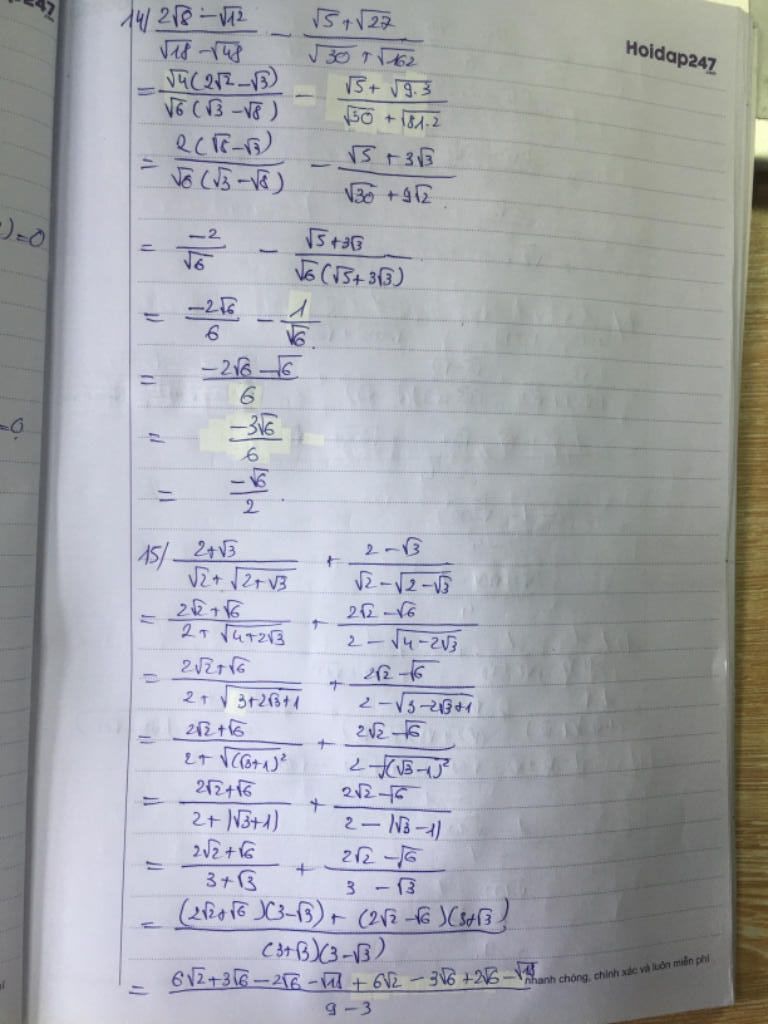 Hoidap247
.com
14/ (2√8 - √12)/(√18 - √48) - (√5 + √27)/(√30 + √162)
= √4(2√2 - √3)/√6(√3 - √8) - (√5 + √9.3)/(√30 + √81.2)
= 2(√8 - √3)/√6(√3 - √8) - (√5 + 3√3)/(√30 + 9√2)
= -2/√6 - (√5 + 3√3)/√6(√5 + 3√3)
)=0
= -2√6/6 - 1/√6.
= (-2√6 - √6)/6
=0
= -3√6/6
= -√6/2.
15/ (2+√3)/(√2 + √(2+√3)) + (2-√3)/(√2 - √(2-√3))
= (2√2+√6)/(2 + √(4+2√3)) + (2√2-√6)/(2 - √(4-2√3))
= (2√2+√6)/(2 + √(3+2√3+1)) + (2√2-√6)/(2 - √(3-2√3+1))
= (2√2+√6)/(2 + √((√3+1)²)) + (2√2-√6)/(2 - √((√3-1)²))
= (2√2+√6)/(2 + |√3+1|) + (2√2-√6)/(2 - |√3-1|)
= (2√2+√6)/(3+√3) + (2√2-√6)/(3-√3)
= ((2√2+√6)(3-√3) + (2√2-√6)(3+√3))/((3+√3)(3-√3))
= (6√2+3√6-2√6-√18 + 6√2-3√6+2√6-√18)/(9-3)
nhanh chóng, chính xác và luôn miễn phí